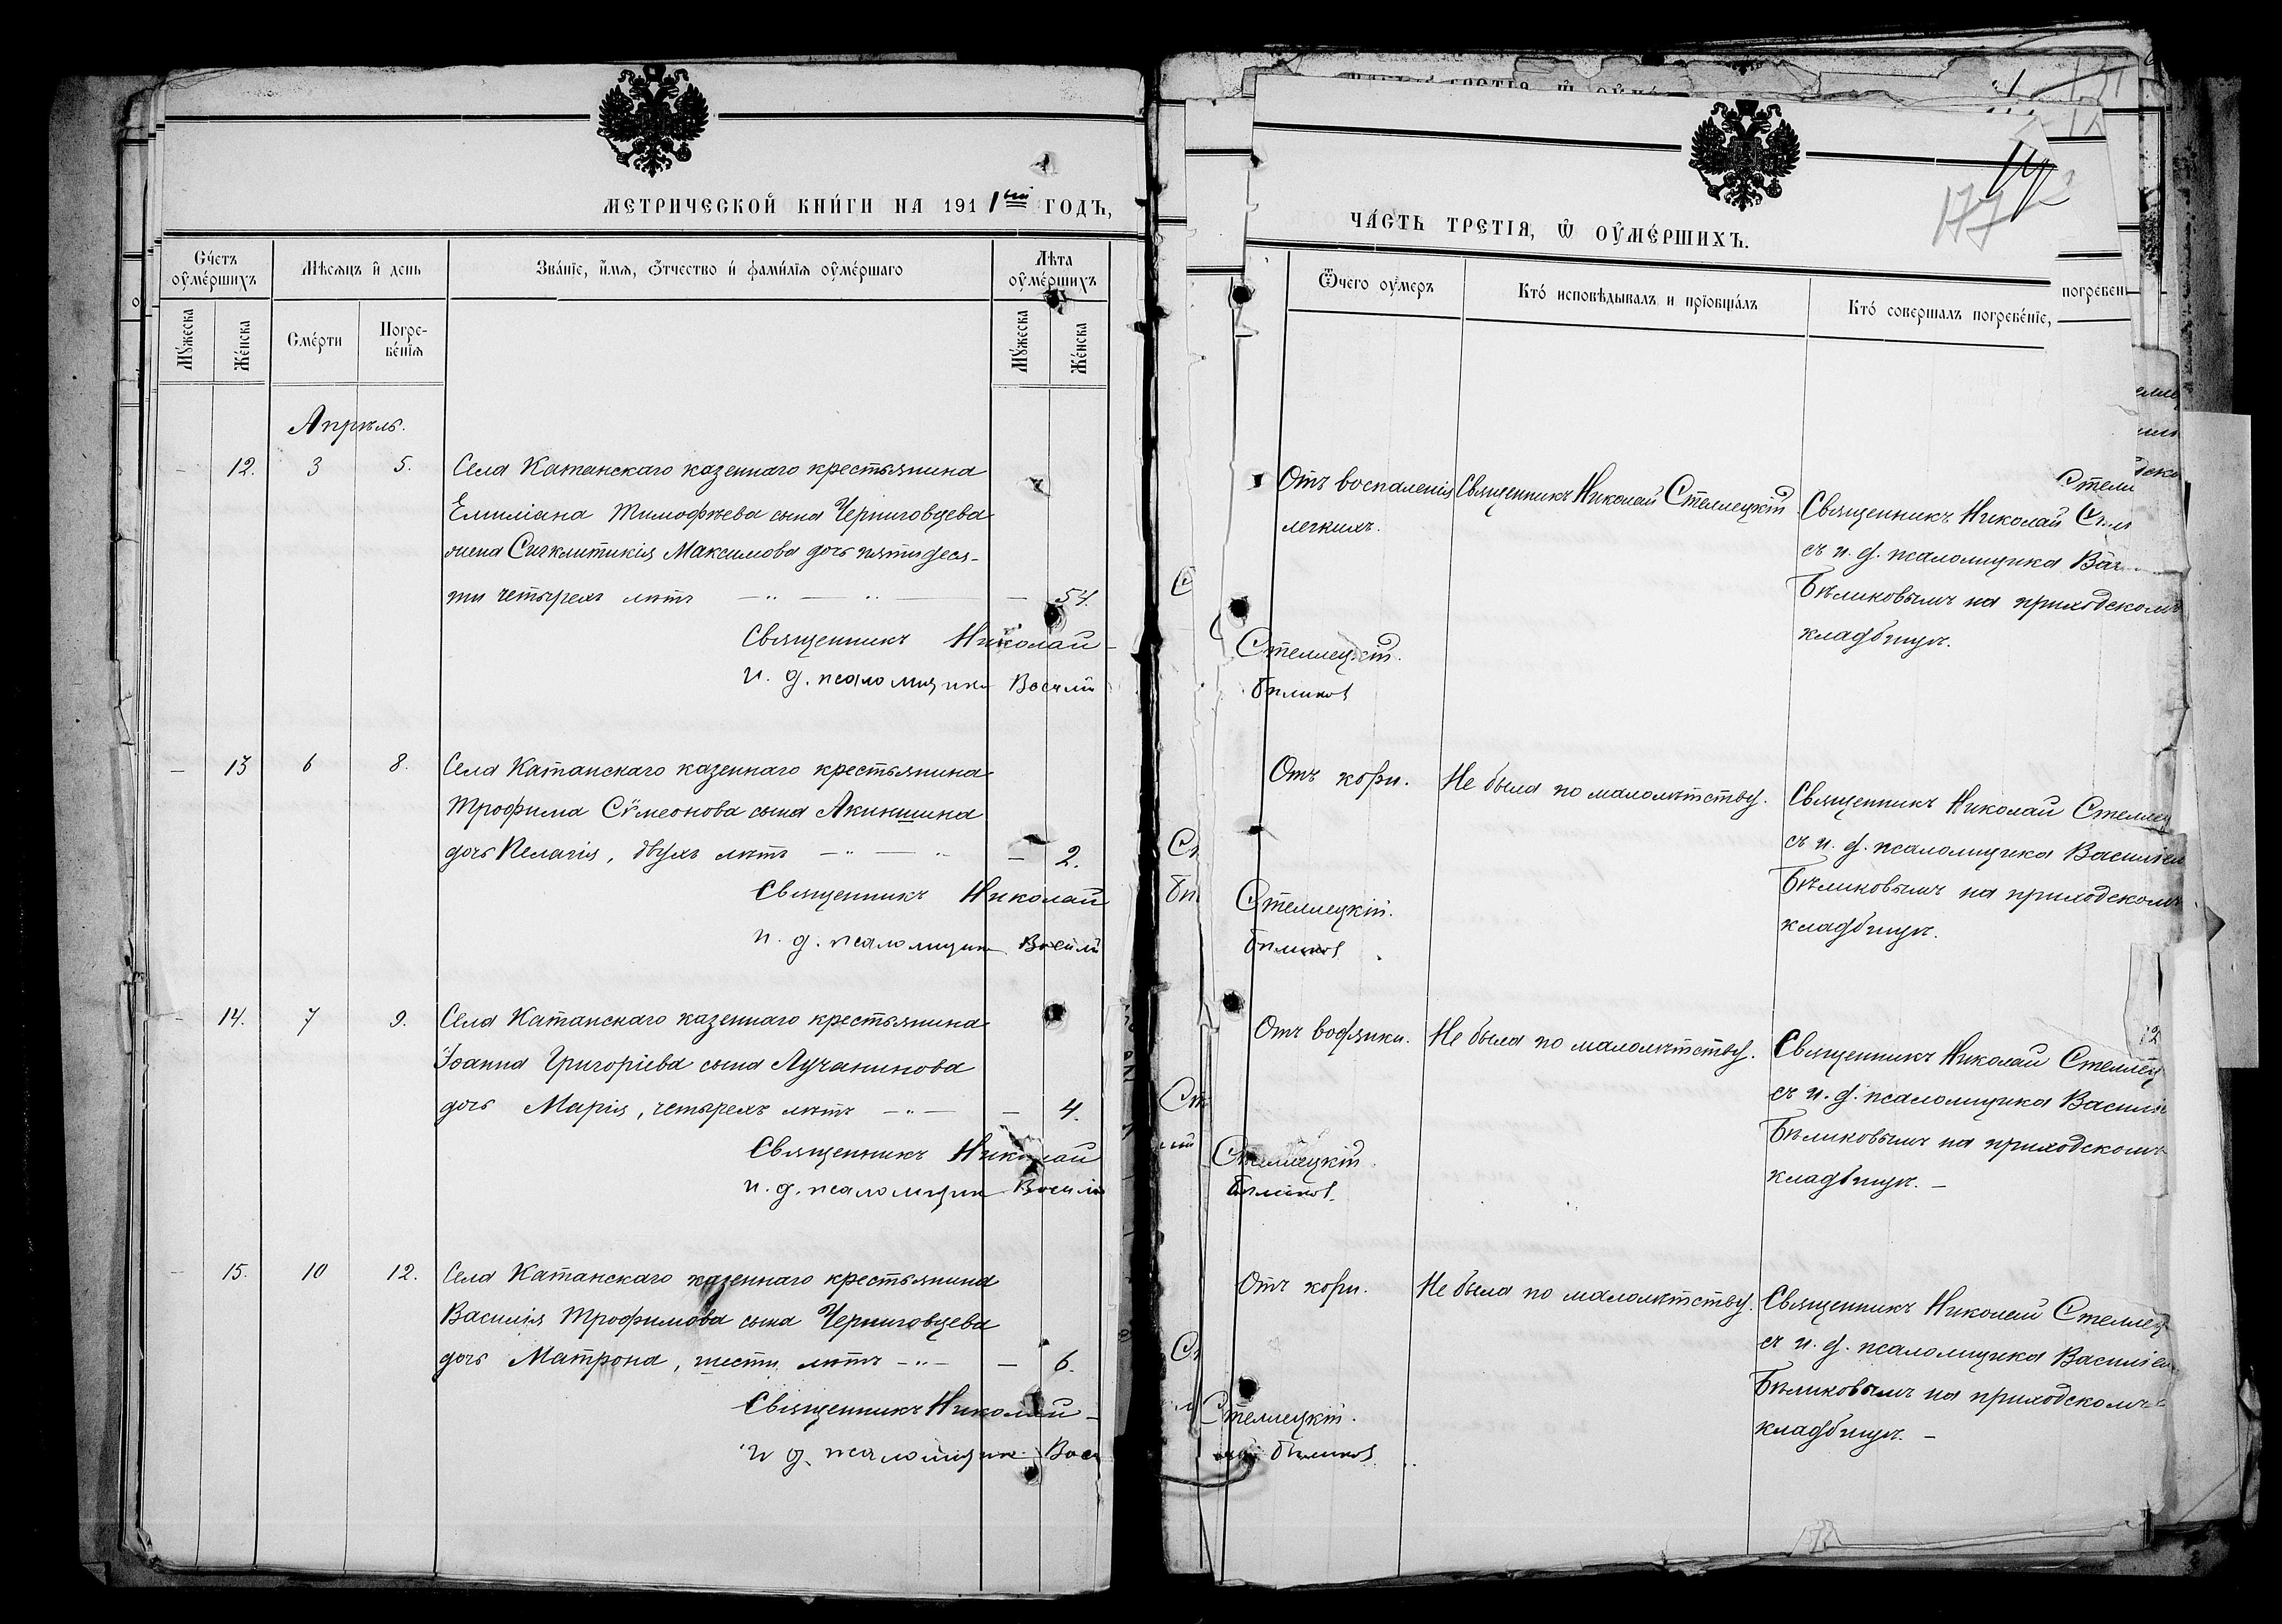 МЕТРИЧЕСКОЙ КНИГИ НА 1911ый ГОДЪ,
Счетъ оумершихъ
Мѣсяцъ и день
Званіе, имя, отчество и фамилія оумершаго
Лѣта оумершихъ
Мужеска
Женска
Смерти
Погребенія
Мужеска
Женска
Апрѣль.
— 12. 3 5. Села Катанскаго казеннаго крестьянина
Емиліана Тимофѣева сына Черниговцева
жена Сигклитикія Максимова дочь пятидеся-
ти четырехъ лѣтъ — 54.
Священникъ Николай
и. д. псаломщика Василій
— 13 6 8. Села Катанскаго казеннаго крестьянина
Трофима Сѵмеонова сына Акиншина
дочь Пелагія, двухъ лѣтъ — 2.
Священникъ Николай
и. д. псаломщика Василій
— 14. 7 9. Села Катанскаго казеннаго крестьянина
Іоанна Григоріева сына Лучанинова
дочь Марія, четырехъ лѣтъ — 4.
Священникъ Николай
и. д. псаломщика Василій
— 15. 10 12. Села Катанскаго казеннаго крестьянина
Василія Трофимова сына Черниговцева
дочь Матрона, шести лѣтъ — 6.
Священникъ Николай
и д. псаломщика Васи
ЧАСТЬ ТРЕТІЯ, Ѿ ОУМЕРШИХЪ.
177
Ѿчего оумеръ
Кто исповѣдывалъ и пріобщалъ
Кто совершалъ погребеніе,
погребен
Отъ воспаленія
легкихъ.
Священникъ Николай Стеллецкій.
Священникъ Николай Стел
съ и. д. псаломщика Ва
Бѣликовымъ на приходскомъ
кладбищѣ.
Стеллецкій.
Бѣликов
Отъ кори.
Не была по малолѣтству.
Священникъ Николай Стеллец
съ и. д. псаломщика Василіем
Бѣликовымъ на приходскомъ
кладбищѣ.
Стеллецкій.
Бѣликов
Отъ водянки.
Не была по малолѣтству.
Священникъ Николай Стеллец
съ и. д. псаломщика Василіе
Бѣликовымъ на приходскомъ
кладбищѣ. —
Стеллецкій.
Бѣликов.
Отъ кори.
Не была по малолѣтству.
Священникъ Николай Стеллец
съ и. д. псаломщика Василіем
Бѣликовымъ на приходскомъ
кладбищѣ. —
Стеллецкій.
Бѣликов